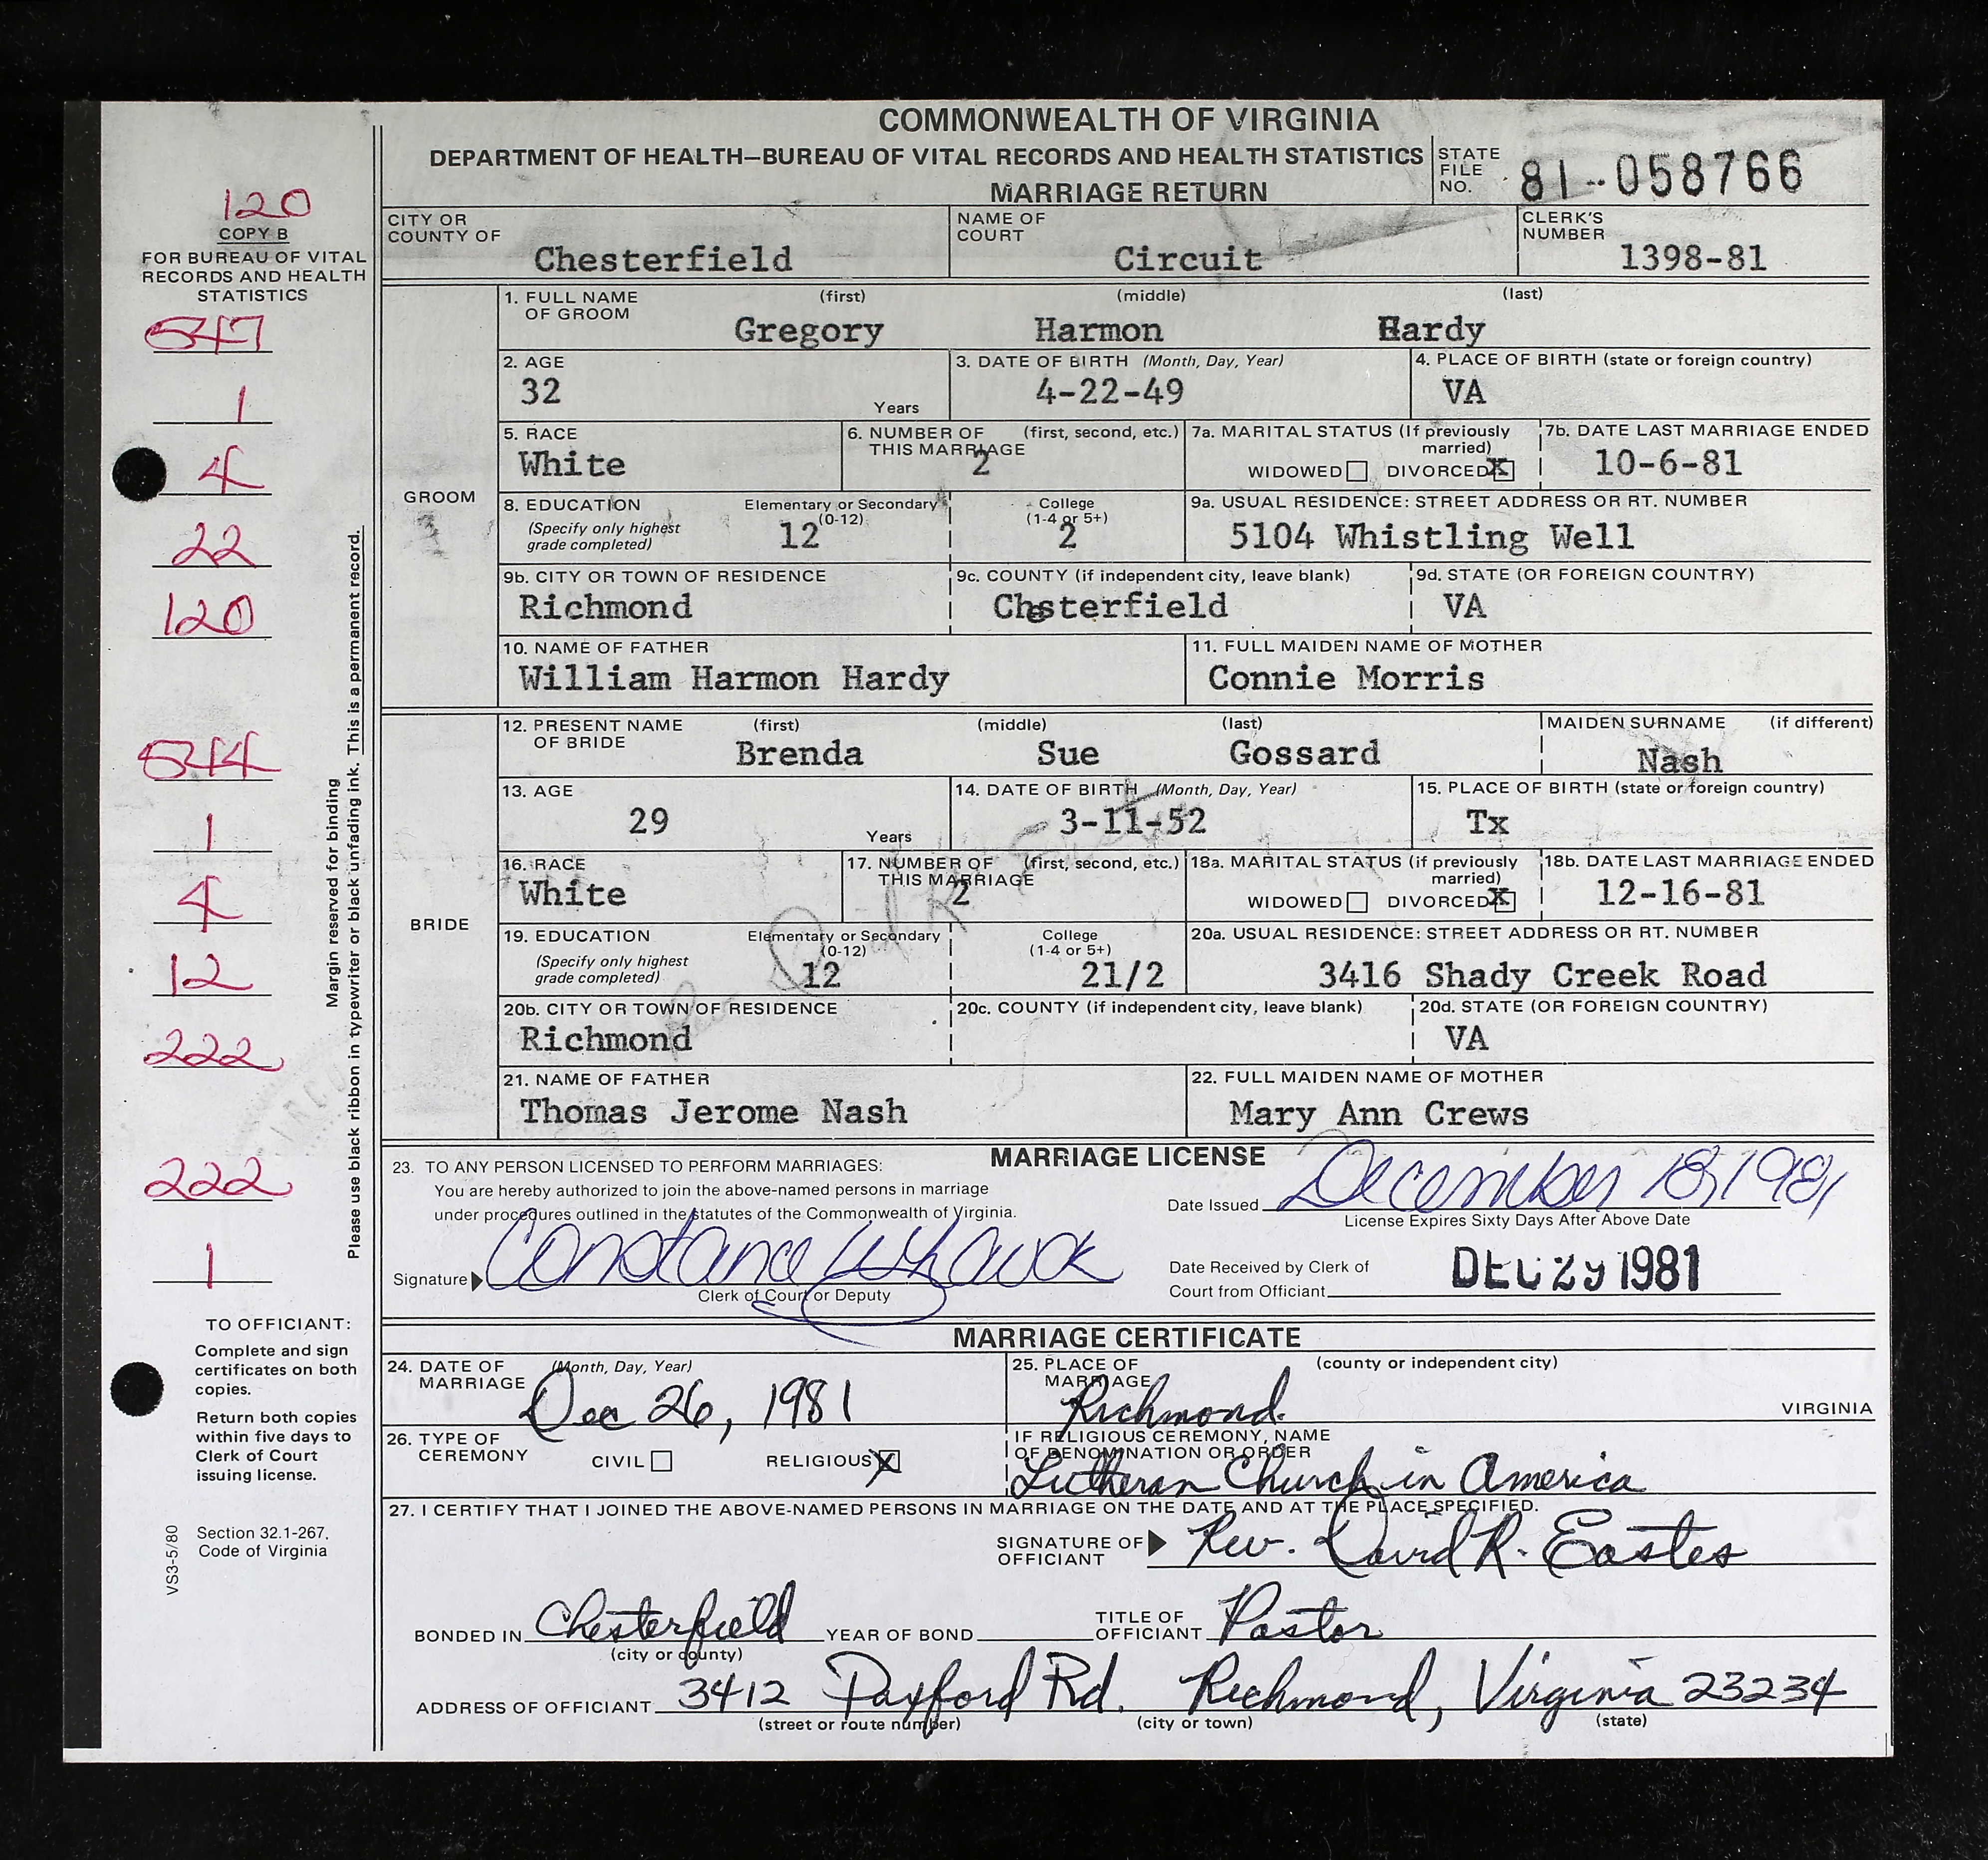 COMMONWEALTH OF VIRGINIA
DEPARTMENT OF HEALTH—BUREAU OF VITAL RECORDS AND HEALTH STATISTICS
MARRIAGE RETURN
STATE FILE NO. 81-058766
120
COPY B
FOR BUREAU OF VITAL
RECORDS AND HEALTH
STATISTICS
547
1
4
22
120
544
1
4
12
222
222
1
Margin reserved for binding
Please use black ribbon in typewriter or black unfading ink. This is a permanent record.
TO OFFICIANT:
Complete and sign
certificates on both
copies.
Return both copies
within five days to
Clerk of Court
issuing license.
Section 32.1-267,
Code of Virginia
VS3-5/80
CITY OR COUNTY OF Chesterfield
NAME OF COURT Circuit
CLERK'S NUMBER 1398-81
GROOM
1. FULL NAME OF GROOM (first) (middle) (last)
Gregory Harmon Hardy
2. AGE 32 Years
3. DATE OF BIRTH (Month, Day, Year) 4-22-49
4. PLACE OF BIRTH (state or foreign country) VA
5. RACE White
6. NUMBER OF THIS MARRIAGE (first, second, etc.) 2
7a. MARITAL STATUS (If previously married) WIDOWED DIVORCED X
7b. DATE LAST MARRIAGE ENDED 10-6-81
8. EDUCATION (Specify only highest grade completed) Elementary or Secondary (0-12) 12 College (1-4 or 5+) 2
9a. USUAL RESIDENCE: STREET ADDRESS OR RT. NUMBER 5104 Whistling Well
9b. CITY OR TOWN OF RESIDENCE Richmond
9c. COUNTY (if independent city, leave blank) Chesterfield
9d. STATE (OR FOREIGN COUNTRY) VA
10. NAME OF FATHER William Harmon Hardy
11. FULL MAIDEN NAME OF MOTHER Connie Morris
BRIDE
12. PRESENT NAME OF BRIDE (first) (middle) (last) MAIDEN SURNAME (if different)
Brenda Sue Gossard Nash
13. AGE 29 Years
14. DATE OF BIRTH (Month, Day, Year) 3-11-52
15. PLACE OF BIRTH (state or foreign country) Tx
16. RACE White
17. NUMBER OF THIS MARRIAGE (first, second, etc.) 2
18a. MARITAL STATUS (if previously married) WIDOWED DIVORCED X
18b. DATE LAST MARRIAGE ENDED 12-16-81
19. EDUCATION (Specify only highest grade completed) Elementary or Secondary (0-12) 12 College (1-4 or 5+) 21/2
20a. USUAL RESIDENCE: STREET ADDRESS OR RT. NUMBER 3416 Shady Creek Road
20b. CITY OR TOWN OF RESIDENCE Richmond
20c. COUNTY (if independent city, leave blank)
20d. STATE (OR FOREIGN COUNTRY) VA
21. NAME OF FATHER Thomas Jerome Nash
22. FULL MAIDEN NAME OF MOTHER Mary Ann Crews
MARRIAGE LICENSE
23. TO ANY PERSON LICENSED TO PERFORM MARRIAGES:
You are hereby authorized to join the above-named persons in marriage
under procedures outlined in the statutes of the Commonwealth of Virginia.
Date Issued December 18, 1981
License Expires Sixty Days After Above Date
Signature Constance
Clerk of Court or Deputy
Date Received by Clerk of
Court from Officiant DEC 29 1981
MARRIAGE CERTIFICATE
24. DATE OF MARRIAGE (Month, Day, Year) Dec 26, 1981
25. PLACE OF MARRIAGE (county or independent city) Richmond VIRGINIA
26. TYPE OF CEREMONY CIVIL RELIGIOUS X
IF RELIGIOUS CEREMONY, NAME
OF DENOMINATION OR ORDER
Lutheran Church in America
27. I CERTIFY THAT I JOINED THE ABOVE-NAMED PERSONS IN MARRIAGE ON THE DATE AND AT THE PLACE SPECIFIED.
SIGNATURE OF OFFICIANT Rev. David R. Eastes
BONDED IN Chesterfield YEAR OF BOND
(city or county)
TITLE OF OFFICIANT Pastor
ADDRESS OF OFFICIANT 3412 Paxford Rd. Richmond, Virginia 23234
(street or route number) (city or town) (state)